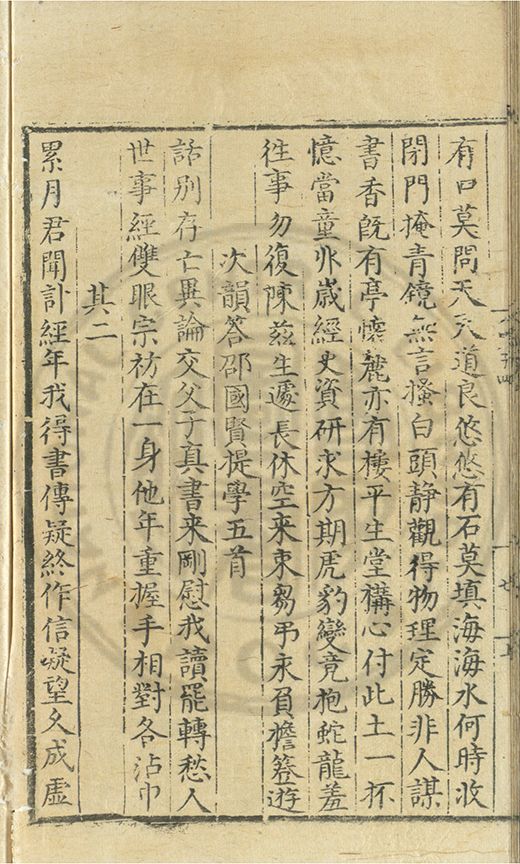 有口莫問天天道良悠悠有石莫填海海水何時收
閉門掩青鏡無言搔白頭静觀得物理定勝非人謀
書香既有亭懷麓亦有樓平生堂構心付此土一抔
憶當童丱歲經史資研求方期虎豹變竟抱蛇龍羞
徃事勿復陳兹生遽長休空来束芻弔永負擔簦遊
次韻答邵國賢提學五首
話别存亡異論交父子真書来剛慰我讀罷轉愁人
世事經雙眼宗祊在一身他年重握手相對各沾巾
其二
累月君聞訃經年我得書傳疑終作信凝望久成虚